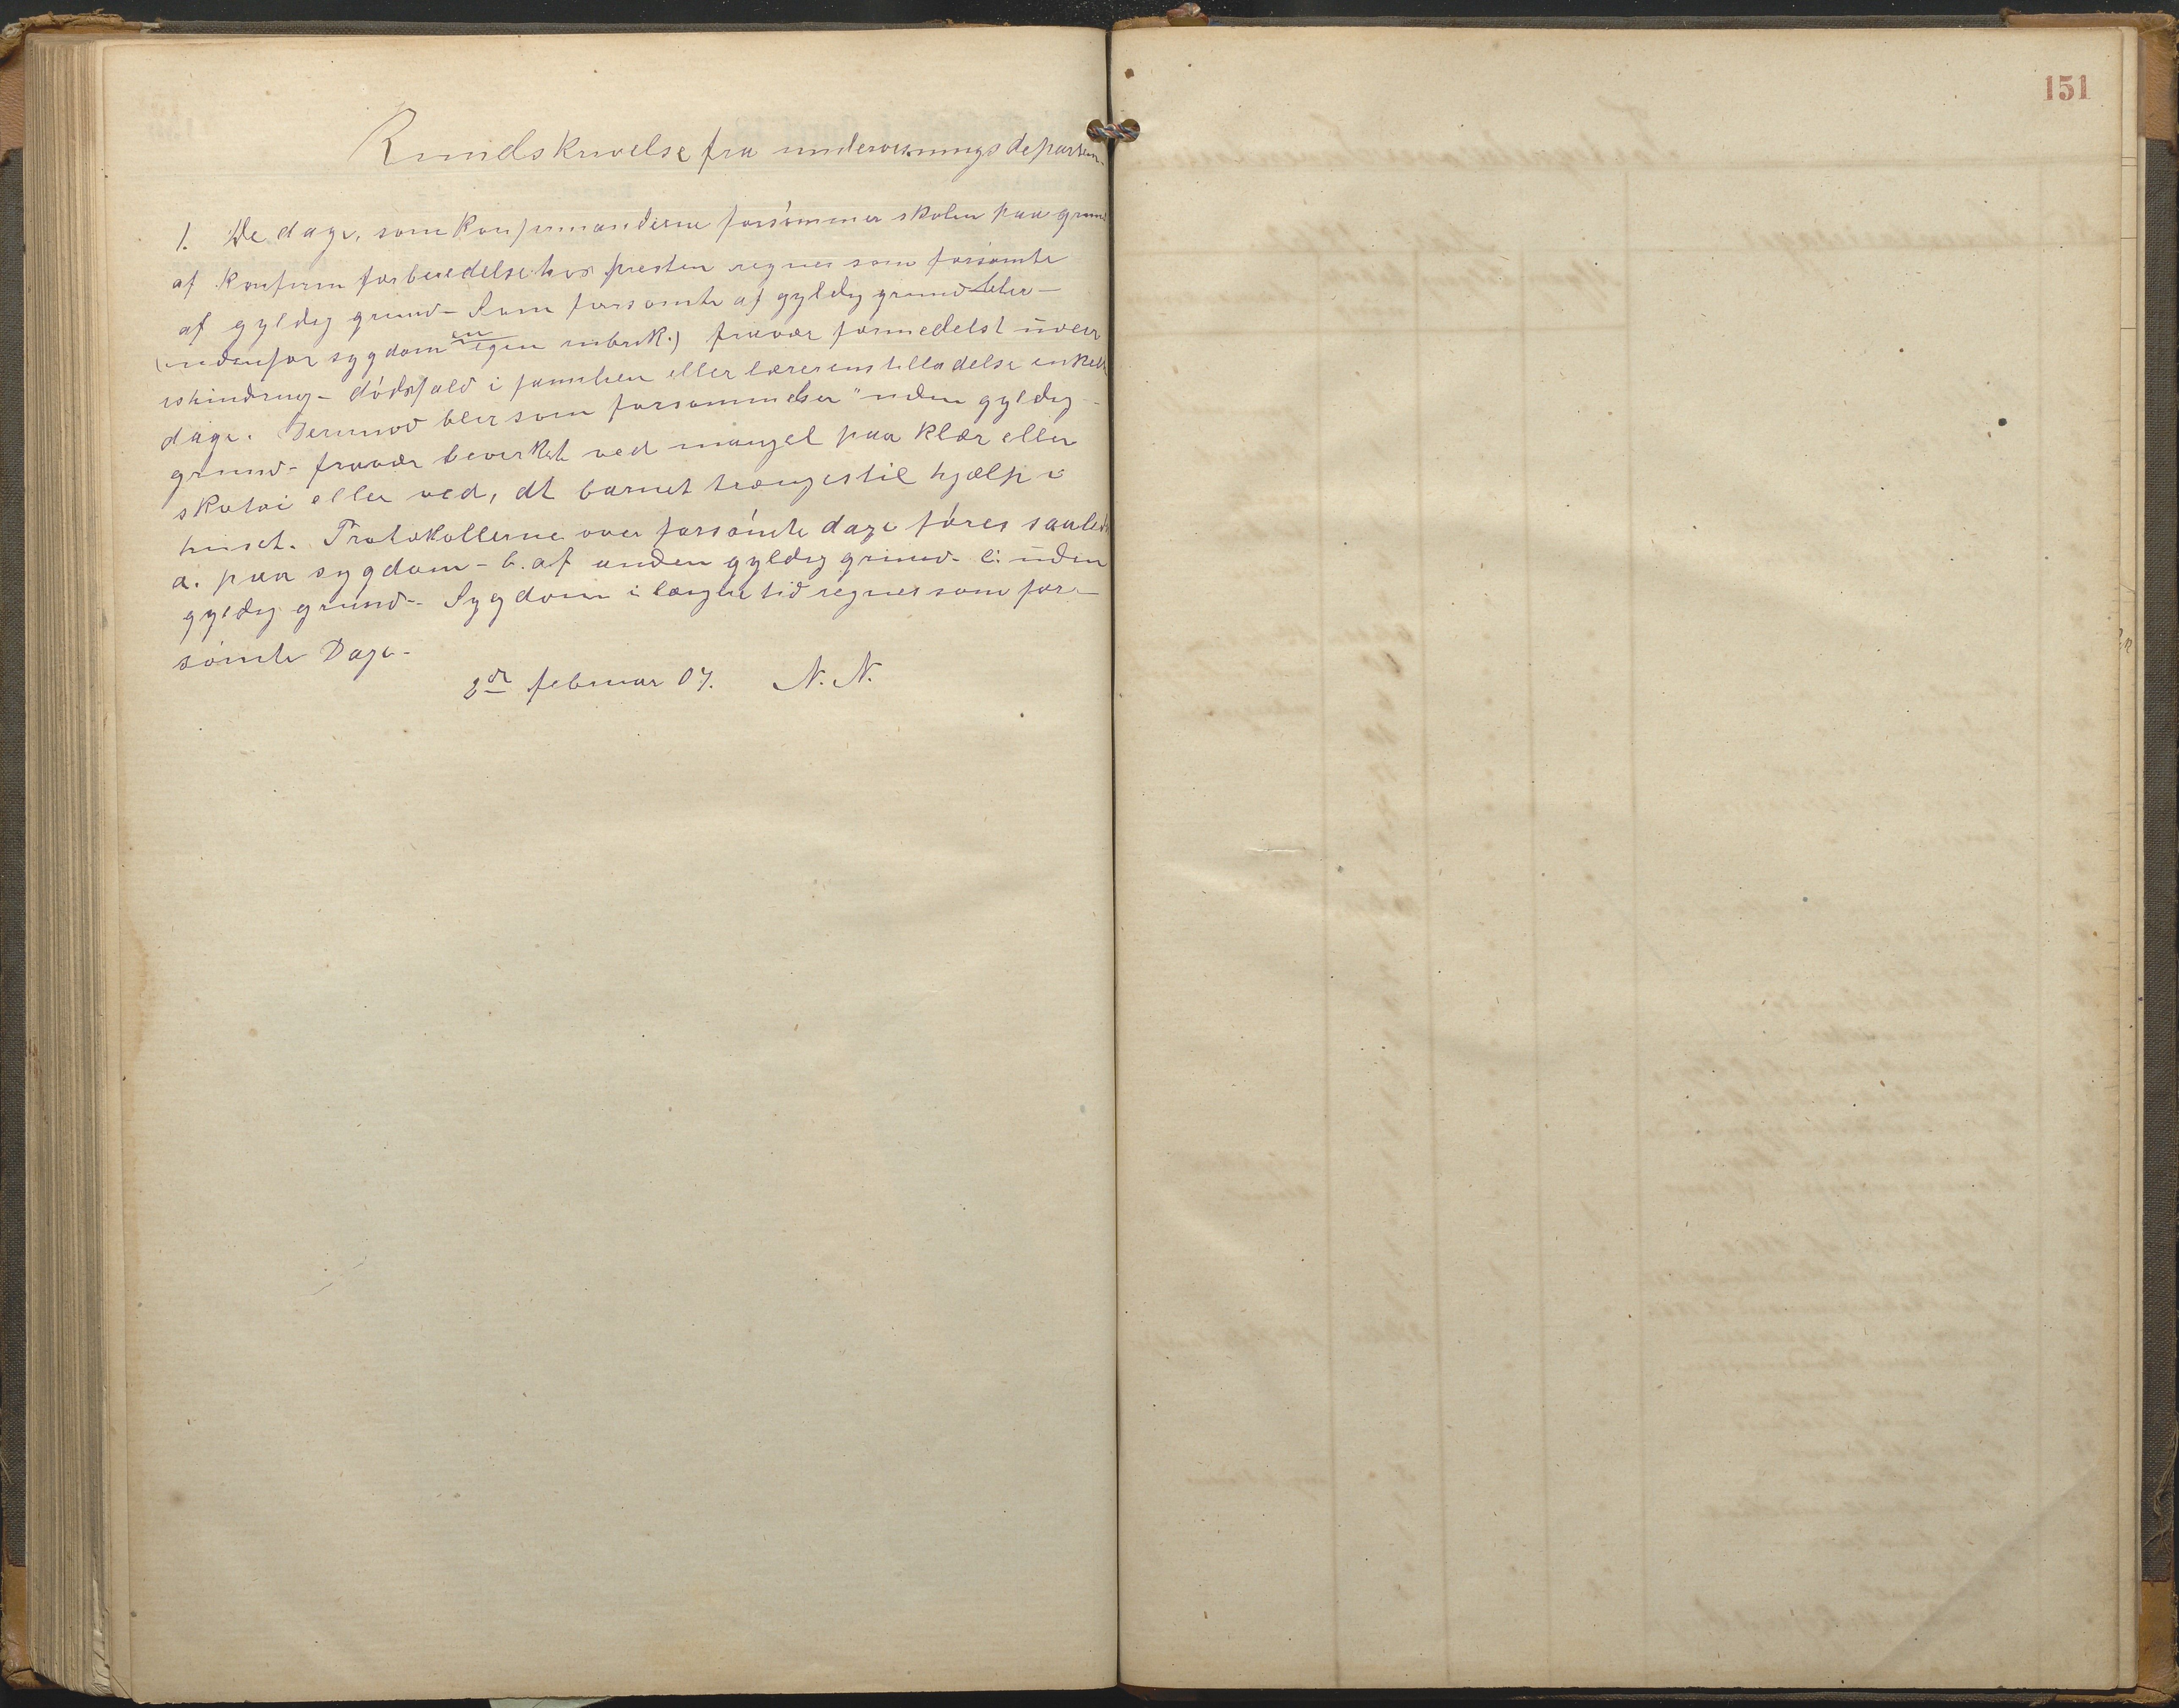 151
Rundskrivelse fra undervisningsdepartem.
1. De dage, som konfirmanderne forsömmer skolen paa grund
af konfirm forberedelse hos presten regnes som forsömte
af gyldig grund - Som forsömte af gyldig grund bler -
en
(udenfor sygdom egen rubrik.) fravær formedelst uveir
ishindring - dödsfald i familien eller lærerens tilladelse enkelte
dage. Derimod bler som forsömmelser "uden gyldig
grund - fravær bevirket ved mangel paa klær eller
skotöi eller ved, at barnet trænges til hjælp i
huset. Protokollerne over forsömte dage föres saaledes
a. paa sygdom - b. af anden gyldig grund - c: uden
gyldig grund - Sygdom i længere tid regnes som for-
sömte Dage -
2de februar 07. N. N.